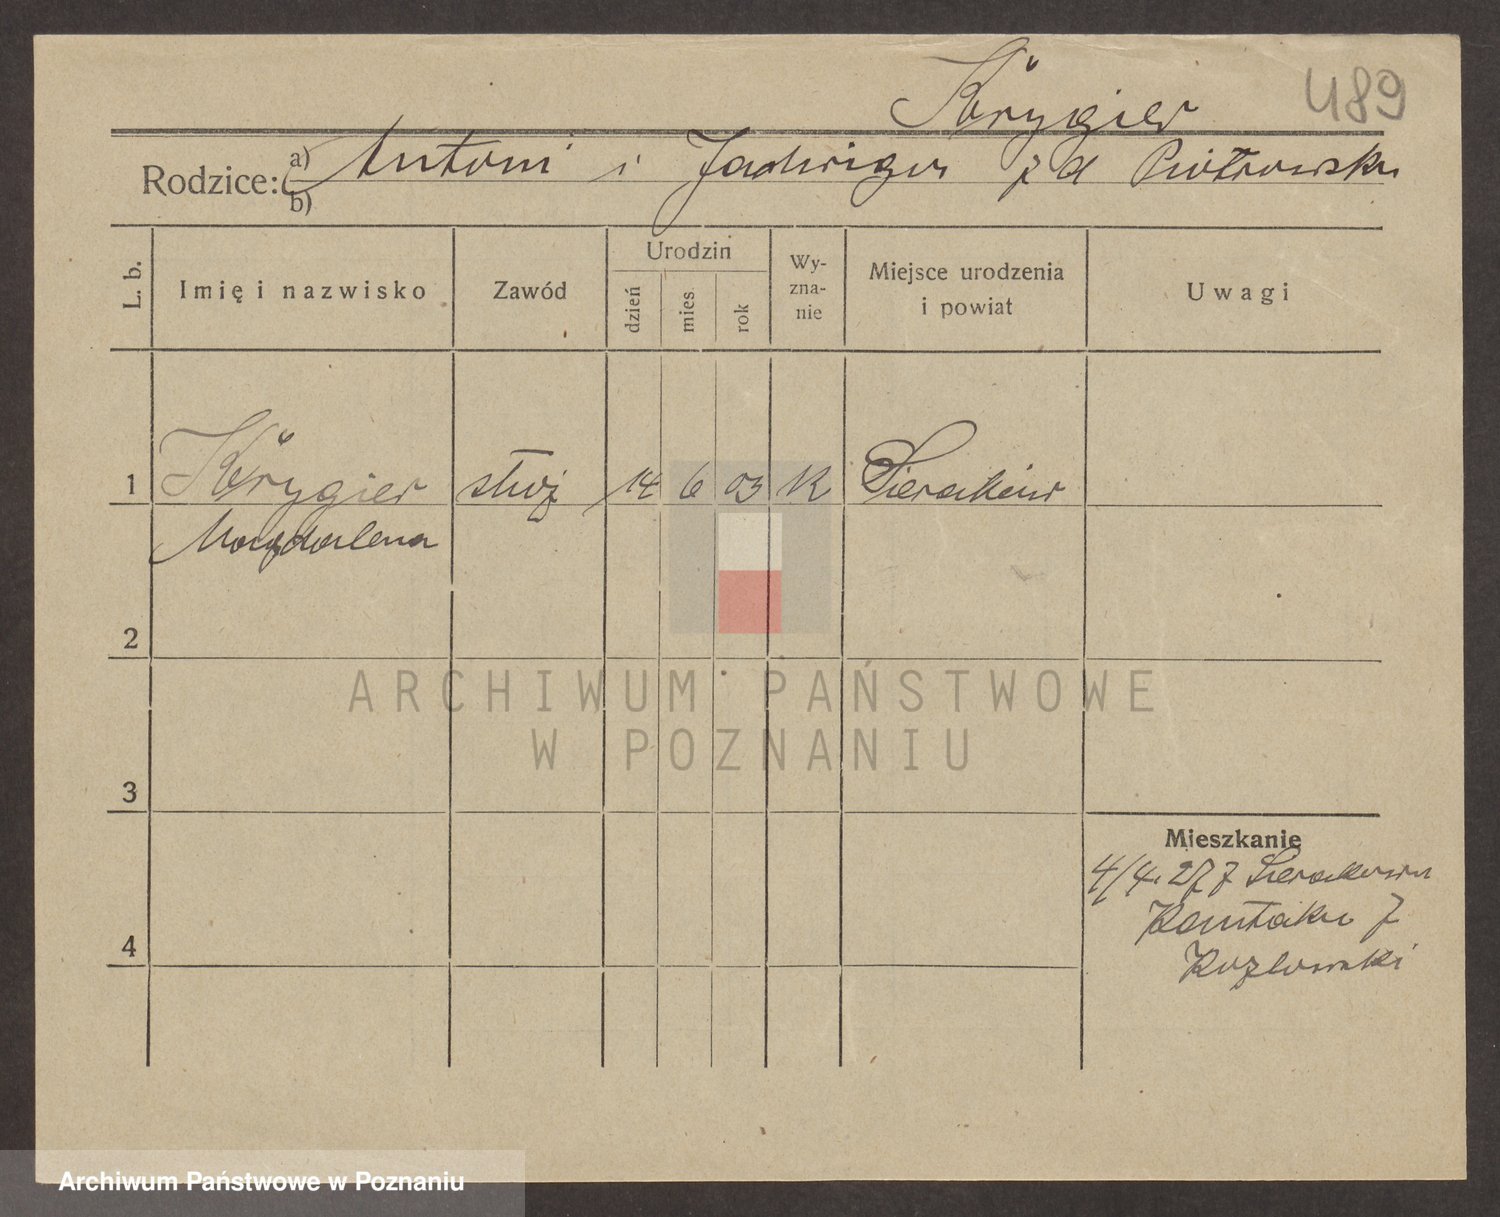 Krygier
489
Rodzice: a) Antoni i Jadwiga z d Piotrowska
b)
L. b.
Imię i nazwisko
Zawód
Urodzin
dzień
mies
rok
Wy-
zna-
nie
Miejsce urodzenia
i powiat
Uwagi
1 Krygier służ 14 6 03 K Sieraków
Magdalena
2
3
4
Mieszkanie
4/4. 27 z Sierakowa
Kantaka 7
Kozlowski
ARCHIWUM PAŃSTWOWE
W POZNANIU
Archiwum Państwowe w Poznaniu